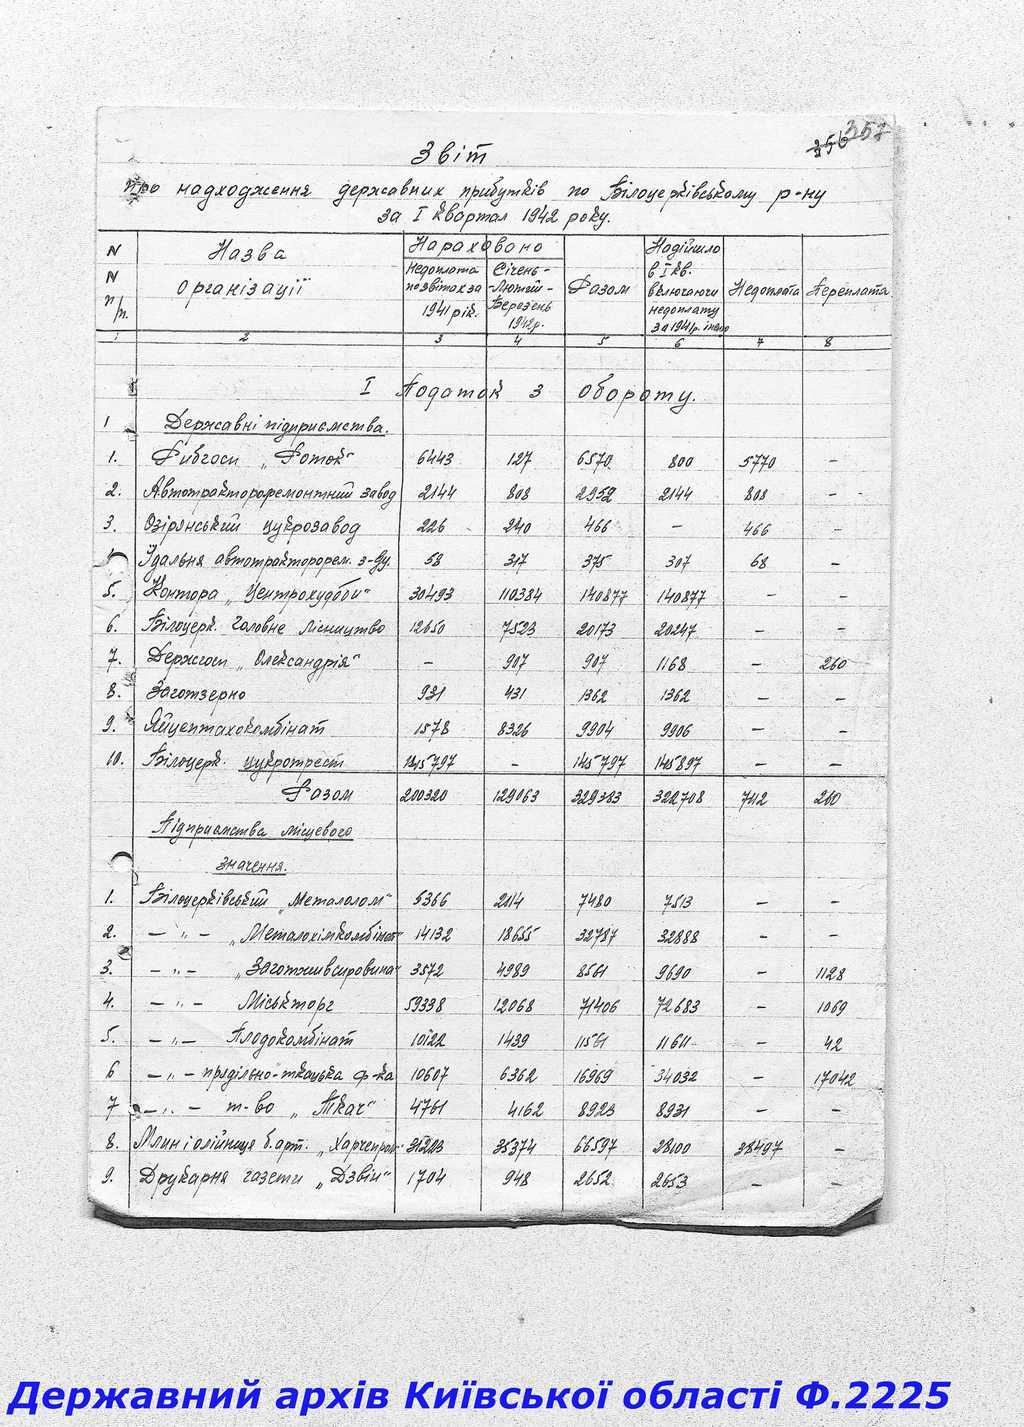 357
356
Звіт
про надходження державних прибутків по Білоцерківському р-ну
за I квартал 1942 року.
N N п/п. Назва організації Нараховано Разом Надійшло в I кв. включаючи недоплату за 1941 р. Недоплата Переплата
Недоплата по звітах за 1941 рік. Січень-Лютий-Березень 1942 р.
1 2 3 4 5 6 7 8
I Податок з обороту.
1 Державні підприємства.
1. Рибгосп „Роток“ 6443 127 6570 800 5770 –
2. Автотрактороремонтний завод 2144 808 2952 2144 808 –
3. Озірянський цукрозавод 226 240 466 – 466 –
Їдальня автотракторорем. з-ду. 58 317 375 307 68 –
5. Контора „Центрохудоби“ 30493 110384 140877 140877 – –
6. Білоцерк. Головне лісництво 12650 7523 20173 20247 – –
7. Держгосп „Олександрія“ – 907 907 1168 – 260
8. Заготзерно 931 431 1362 1362 – –
9. Яйцептахокомбінат 1578 8326 9904 9906 – –
10. Білоцерк. цукротрест 145797 – 145797 145897 – –
Разом 200320 129063 329383 322708 7112 260
Підприємства місцевого
значення.
1. Білоцерківський „Металолом“ 5366 2114 7480 7513 – –
2. – „ – „Металохімкомбінат“ 14132 18655 32787 32888 – –
3. – „ – „Заготживсировина“ 3572 4989 8561 9690 – 1128
4. – „ – Міськторг 59338 12068 71406 72683 – 1069
5. – „ – Плодокомбінат 10122 1439 11561 11611 – 42
6 – „ – прядільно-ткацька ф-ка 10607 6362 16969 34032 – 17042
7 – „ – т-во „Ткач“ 4761 4162 8923 8931 – –
8. Млин і олійниця б. арт. „Харчепром“ 31223 35374 66597 28100 38497 –
9. Друкарня газети „Дзвін“ 1704 948 2652 2653 – –
Державний архів Київської області Ф.2225